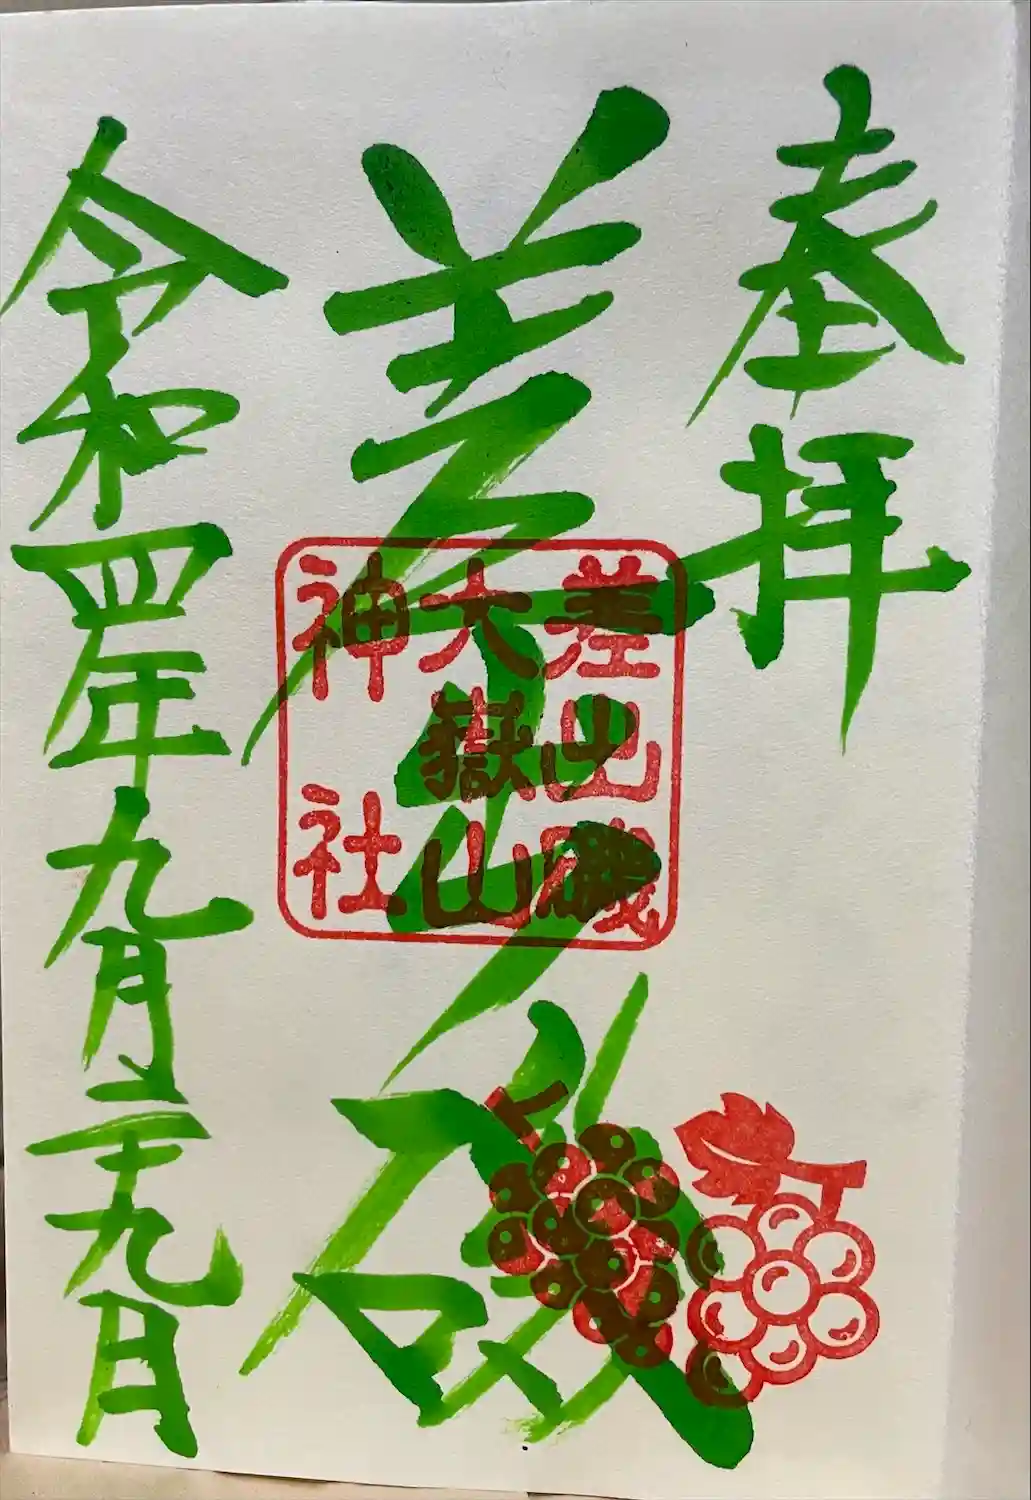 奉拝
差出磯
差出磯
大嶽山
神社
令和四年九月二十九日